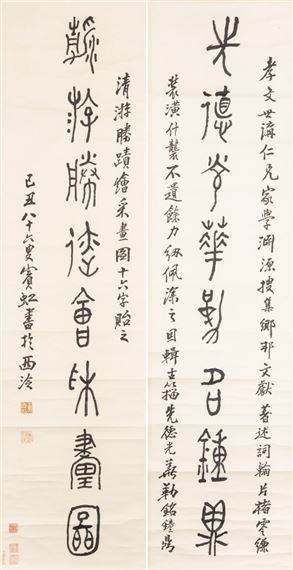 孝文世講仁兄家學淵源搜集鄉邦文獻著述詞翰片楮零縑
先德光華勒名鐘鼎
裝潢什襲不遺餘力紉佩深之因輯古籀先德光華勒銘鐘鼎
清游勝蹟繪采畫圖十六字貽之
游勝蹟會采畫圖
己丑八十六叟賓虹書於西泠